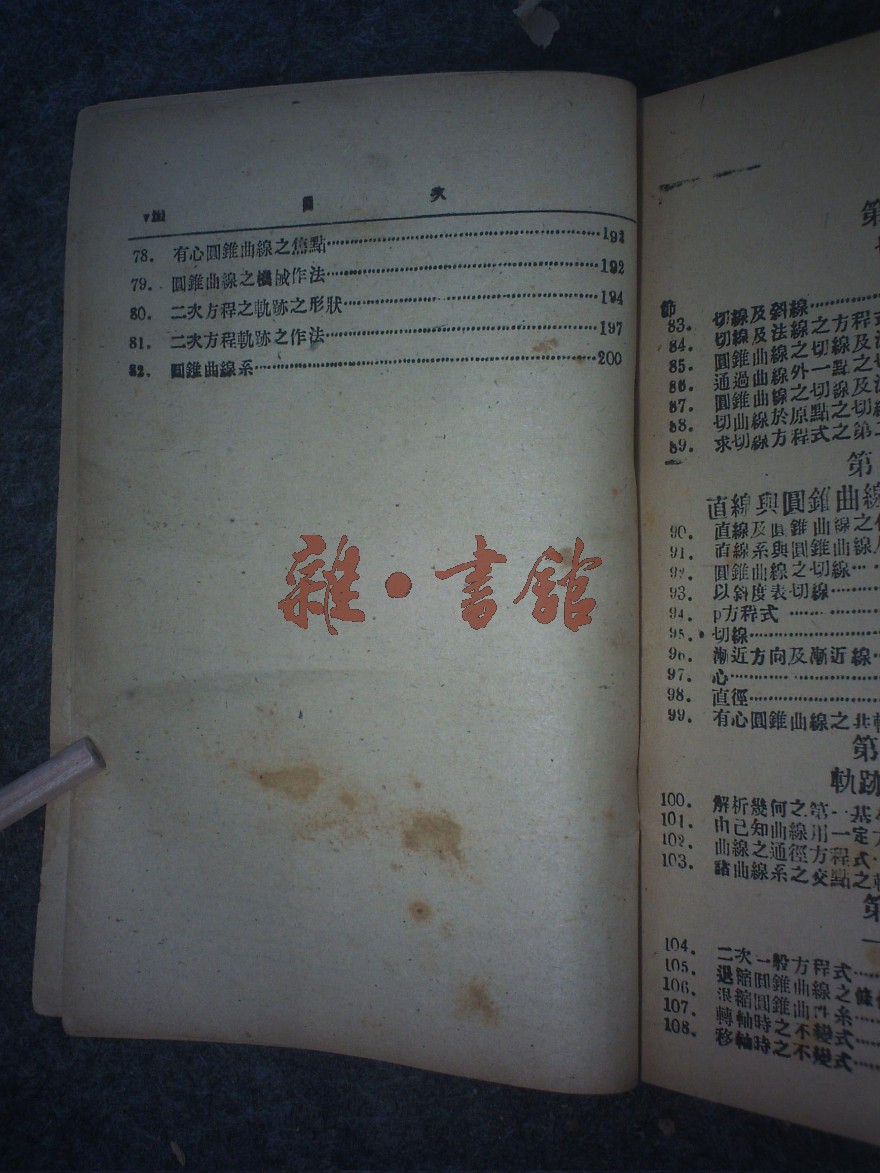 viii 目 次
78. 有心圓錐曲線之焦點 192
79. 圓錐曲線之機械作法 192
80. 二次方程之軌跡之形狀 194
81. 二次方程軌跡之作法 197
82. 圓錐曲線系 200
雜·書館
第
節
83. 切線及斜線
84. 切線及法線之方程式
85. 圓錐曲線之切線及
86. 通過曲線外一點之切
87. 圓錐曲線之切線及法
88. 切曲線於原點之切線
89. 求切線方程式之第二
第
直線與圓錐曲線
90. 直線及圓錐曲線之
91. 直線系與圓錐曲線
92. 圓錐曲線之切線
93. 以斜度表切線
94. p方程式
95. 切線
96. 漸近方向及漸近線
97. 心
98. 直徑
99. 有心圓錐曲線之共軛
第
軌跡
100. 解析幾何之第一基
101. 由已知曲線用一定
102. 曲線之通徑方程式
103. 諸曲線系之交點之軌
第
104. 二次一般方程式
105. 退縮圓錐曲線之條
106. 退縮圓錐曲線系
107. 轉軸時之不變式
108. 移軸時之不變式